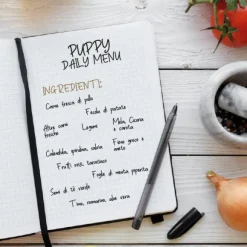 PUPPY
DAILY MENU
INGREDIENTI:
Carne fresca di pollo
Fecola di patate
Altre carni fresche
Legumi
Mela, Cicoria e carota
Calendula, spirulina, salvia
Fieno greco e mirto
Frutti rossi, tarassaco
Foglie di menta piperita
Semi di tè verde
Timo, rosmarino, aloe vera